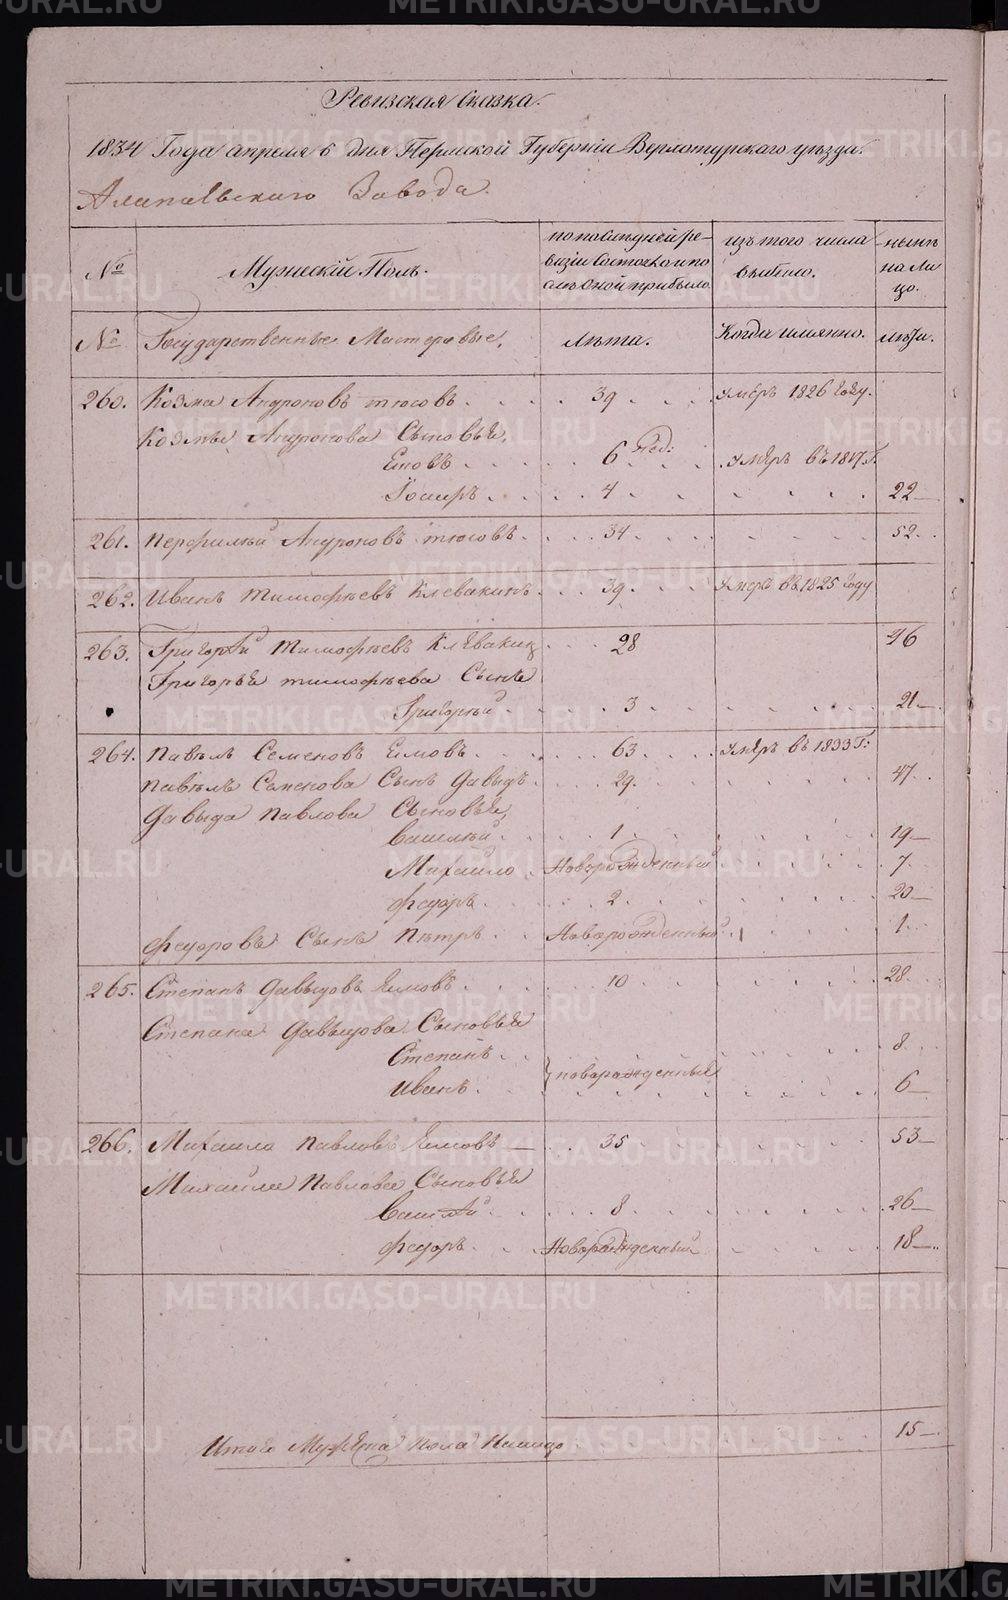 Ревизская Сказка.
1834 Года апреля 6 дня Пермской Губернiи Верхотурскаго уезда.
Алапаевскаго Завода.
№ Мужескiй Полъ. по последней ревизiи Состояло и после оной прибыло изъ того числа выбыло. ныне на лицо.
№ Государственные Мастеровые. лета. Когда имянно. лета.
260. Козма Андроновъ тюсовъ 39 умеръ 1826 году.
Козмы Андронова Сыновья,
6 нед: умеръ въ 1817 Г.
4 22
261. Перфилий Андроновъ тюсовъ 34 52
262. Иванъ тимофеевъ Клевакинъ 39 умеръ въ 1825 году
263. Григорий тимофеевъ Клевакин 28 46
Григорья тимофеева Сынъ
Григорий 3 21
264. Павелъ Семеновъ Ямовъ 63 умеръ въ 1833 Г:
Павелъ Семенова Сынъ давыдъ 29 47
давыда Павлова Сыновья,
Василий 1 19
Михайло Новорожденный 7
федоръ 2 20
федоровъ Сынъ Петръ Новорожденный 1
265. Степанъ давыдовъ Ямовъ 10 28
Степана давыдова Сыновья
Степанъ 8
новорожденные
Иванъ 6
266. Михаила Павловъ Ямовъ 35 53
Михайла Павлова Сыновья
Василий 8 26
федоръ Новорожденный 18
Итого Мужеска пола Налицо 15
METRIKI.GASO-URAL.RU